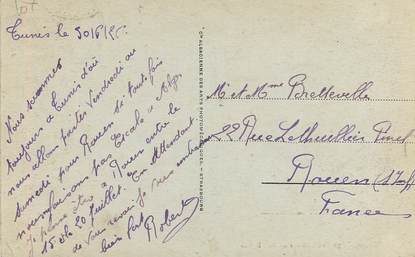 Tunis le 30/6/25.
Nous sommes
toujours à Tunis d'où
nous allons partir Vendredi ou
Samedi pour Rouen si toutefois
nous faisons pas Escale à Alger.
Je pense être à Rouen entre le
15 et le 20 Juillet. En attendant
de vous revoir je vous embrasse
bien fort
Robert
Cie ALSACIENNE DES ARTS PHOTOMÉCANIQUES - STRASBOURG
Mr et Mme Bretteville
22 Rue Lethuillier Pinel
Rouen (S. Infre)
France